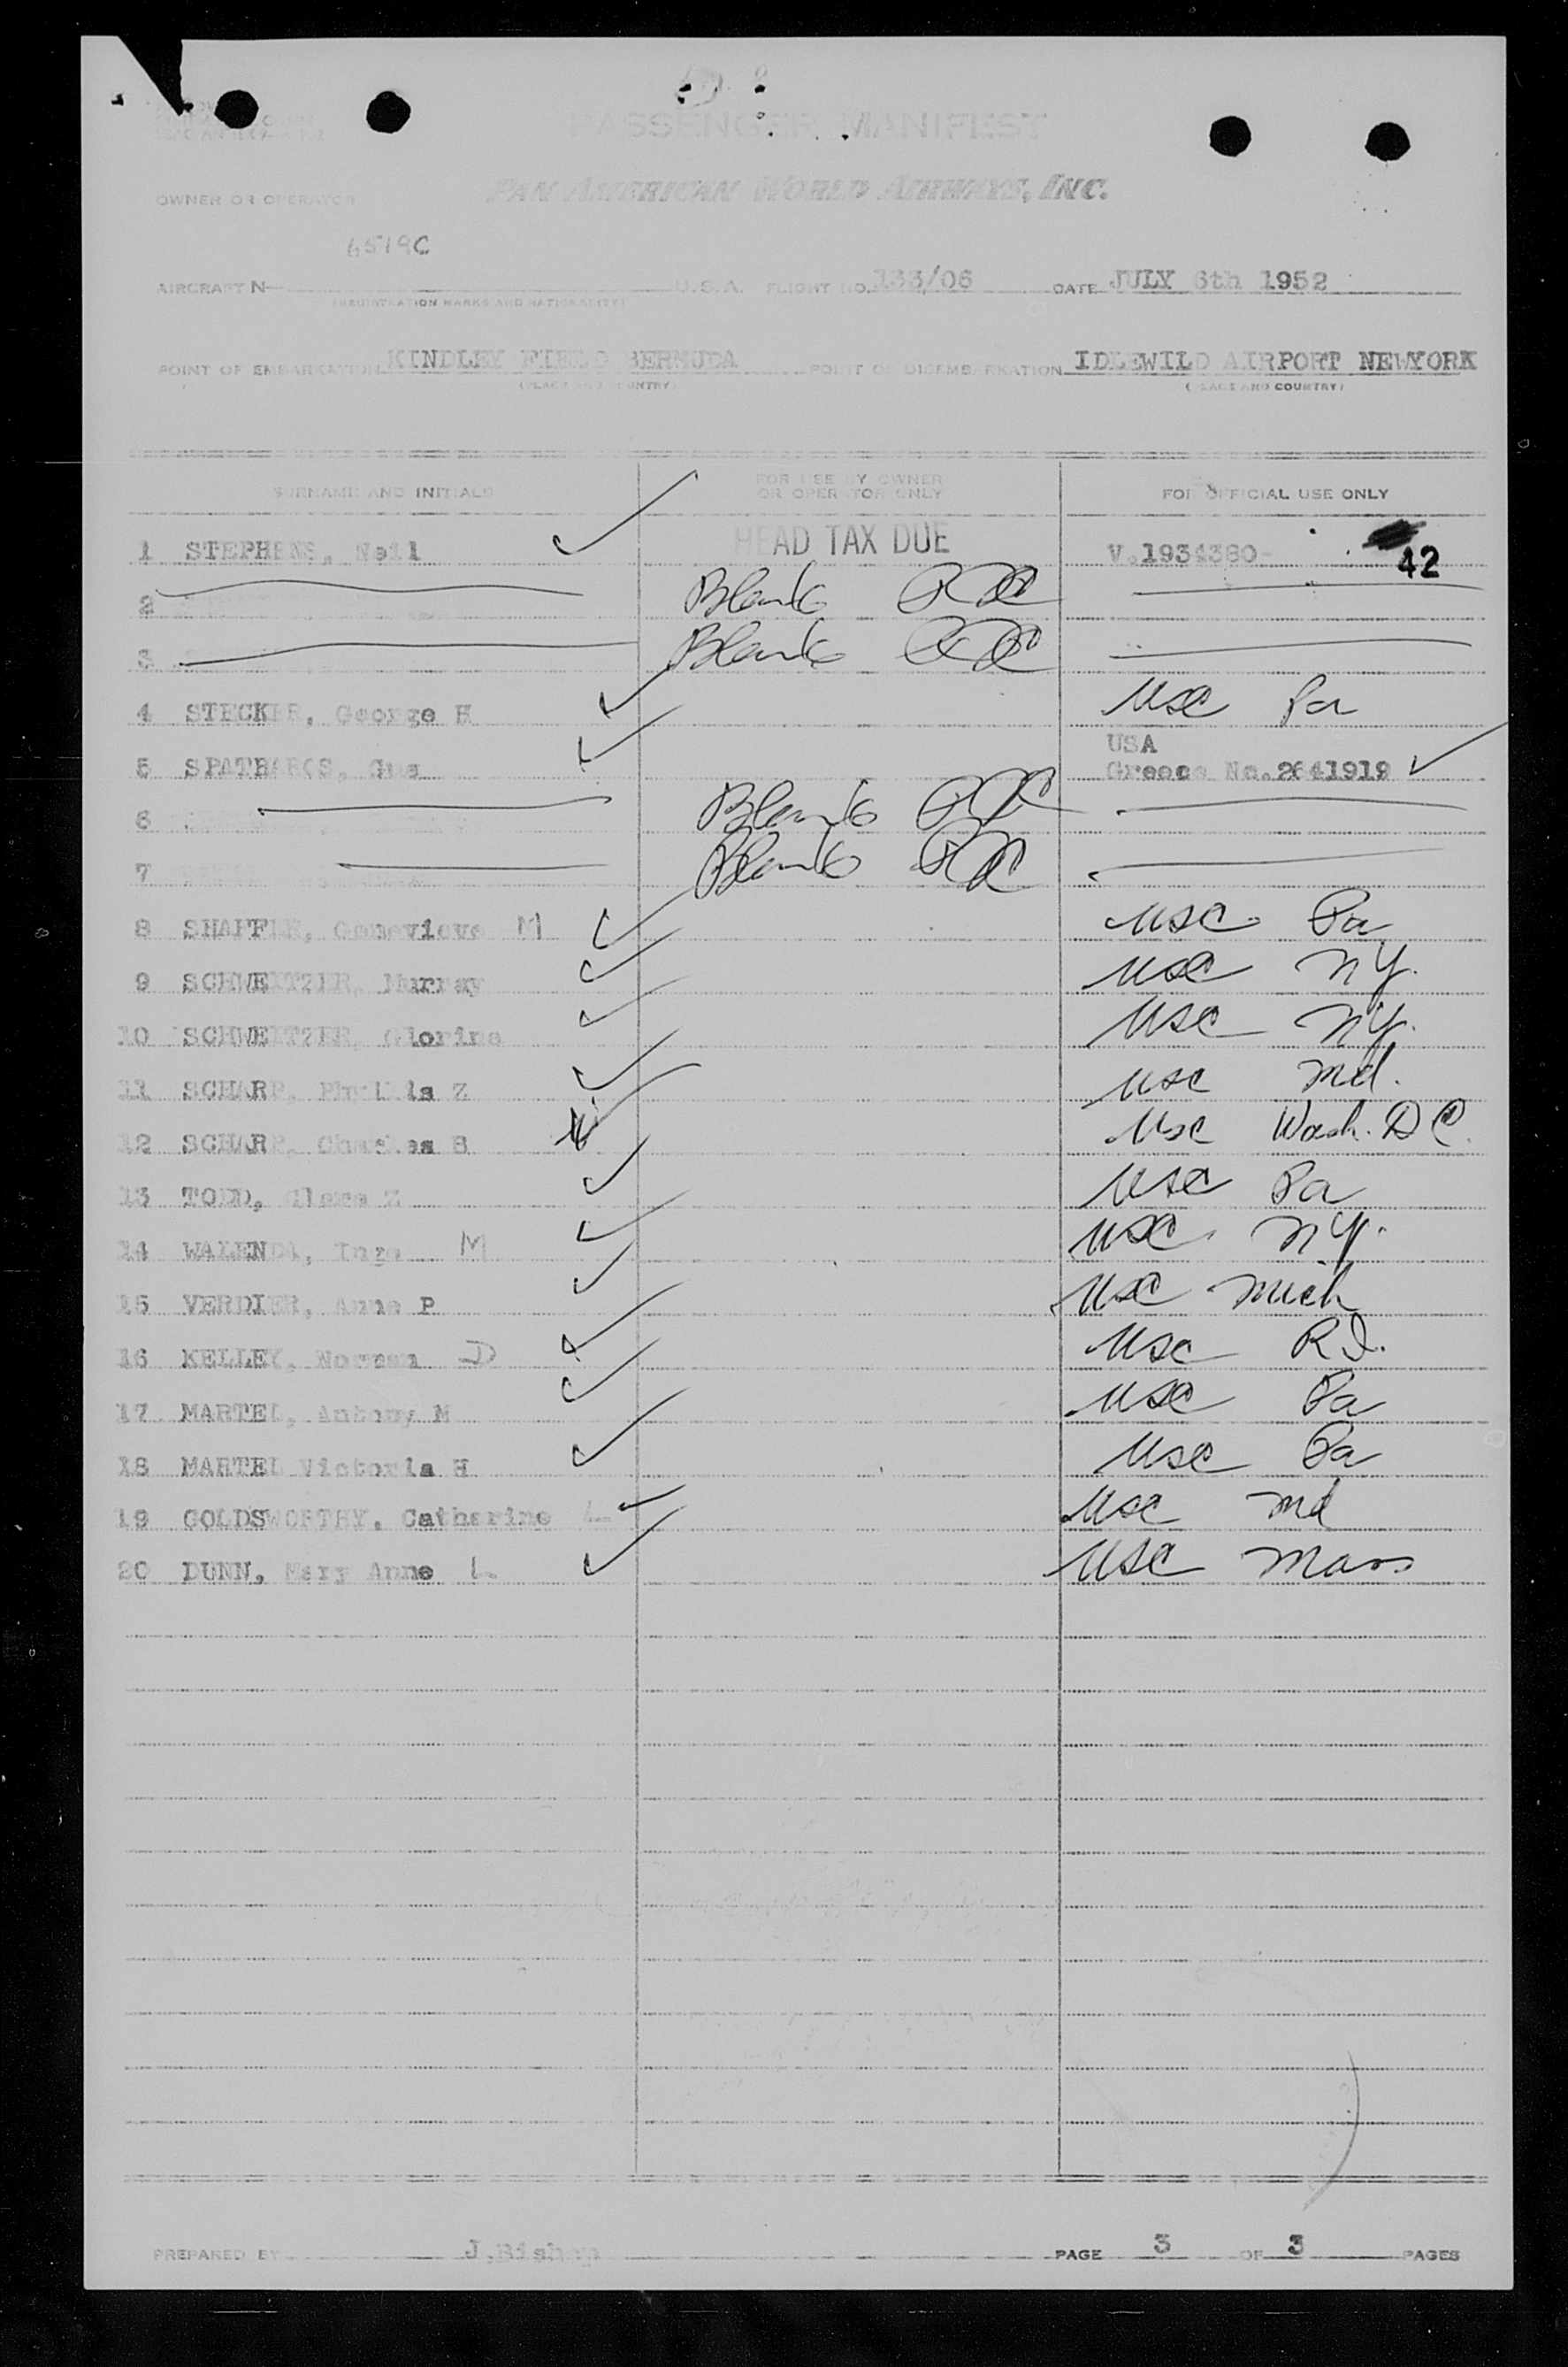 PASSENGER MANIFEST
OWNER OR OPERATOR PAN AMERICAN WORLD AIRWAYS, INC.
6519C
AIRCRAFT N U.S.A. FLIGHT NO. 133/06 DATE JULY 6th 1952
(REGISTRATION MARKS AND NATIONALITY)
POINT OF EMBARKATION KINDLEY FIELD BERMUDA POINT OF DISEMBARKATION IDLEWILD AIRPORT NEWYORK
(PLACE AND COUNTRY) (PLACE AND COUNTRY)
SURNAME AND INITIALS FOR USE BY OWNER OR OPERATOR ONLY FOR OFFICIAL USE ONLY
1 STEPHENS, Neil HEAD TAX DUE V.1934380- 42
2 Blank
3 Blank
4 STECKER, George H USC Pa
USA
5 SPATHAROS, Gus Greece No.2641919
6 Blank
7 Blank
8 SHAFFER, Genevieve M USC Pa
9 SCHWEITZER, Murray USC NY.
10 SCHWEITZER, Glorine USC NY.
11 SCHARF, Phyllis Z USC Md.
12 SCHARF, Charles B USC Wash. DC.
13 TODD, USC Pa
14 WALENDA, Inge M USC NY.
15 VERDIER, Anne P USC Mich
16 KELLEY, Norman D USC R.I.
17 MARTEL, Antony M USC Pa
18 MARTEL Victoria H USC Pa
19 GOLDSWORTHY, Catharine L USC Md
20 DUNN, Mary Anne L. USC Mass
PREPARED BY J.Bishop PAGE 3 OF 3 PAGES